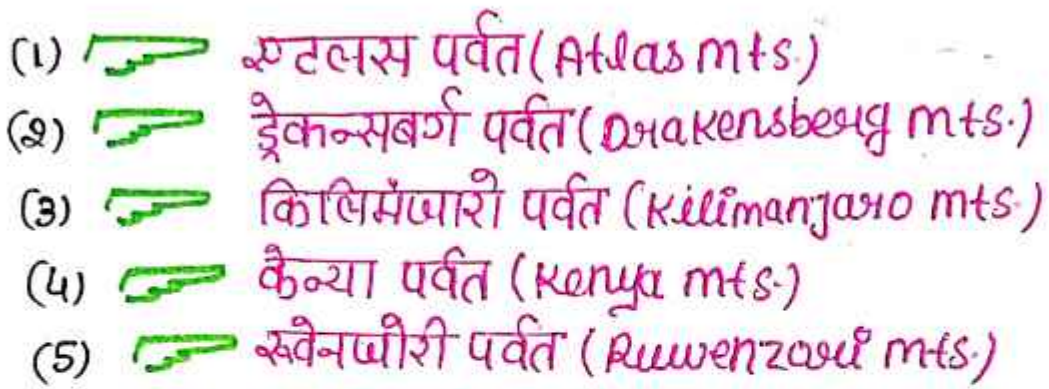 (1) एटलस पर्वत (Atlas mts.)
(2) ड्रेकन्सबर्ग पर्वत (Drakensberg mts.)
(3) किलिमंजारो पर्वत (Kilimanjaro mts.)
(4) केन्या पर्वत (Kenya mts.)
(5) रूवेनजोरी पर्वत (Ruwenzori mts.)